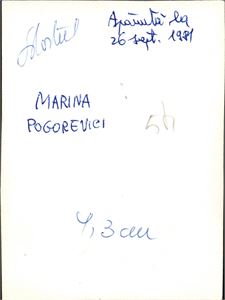 Apărută la
26 sept. 1981
MARINA
POGOREVICI
4,3 cm